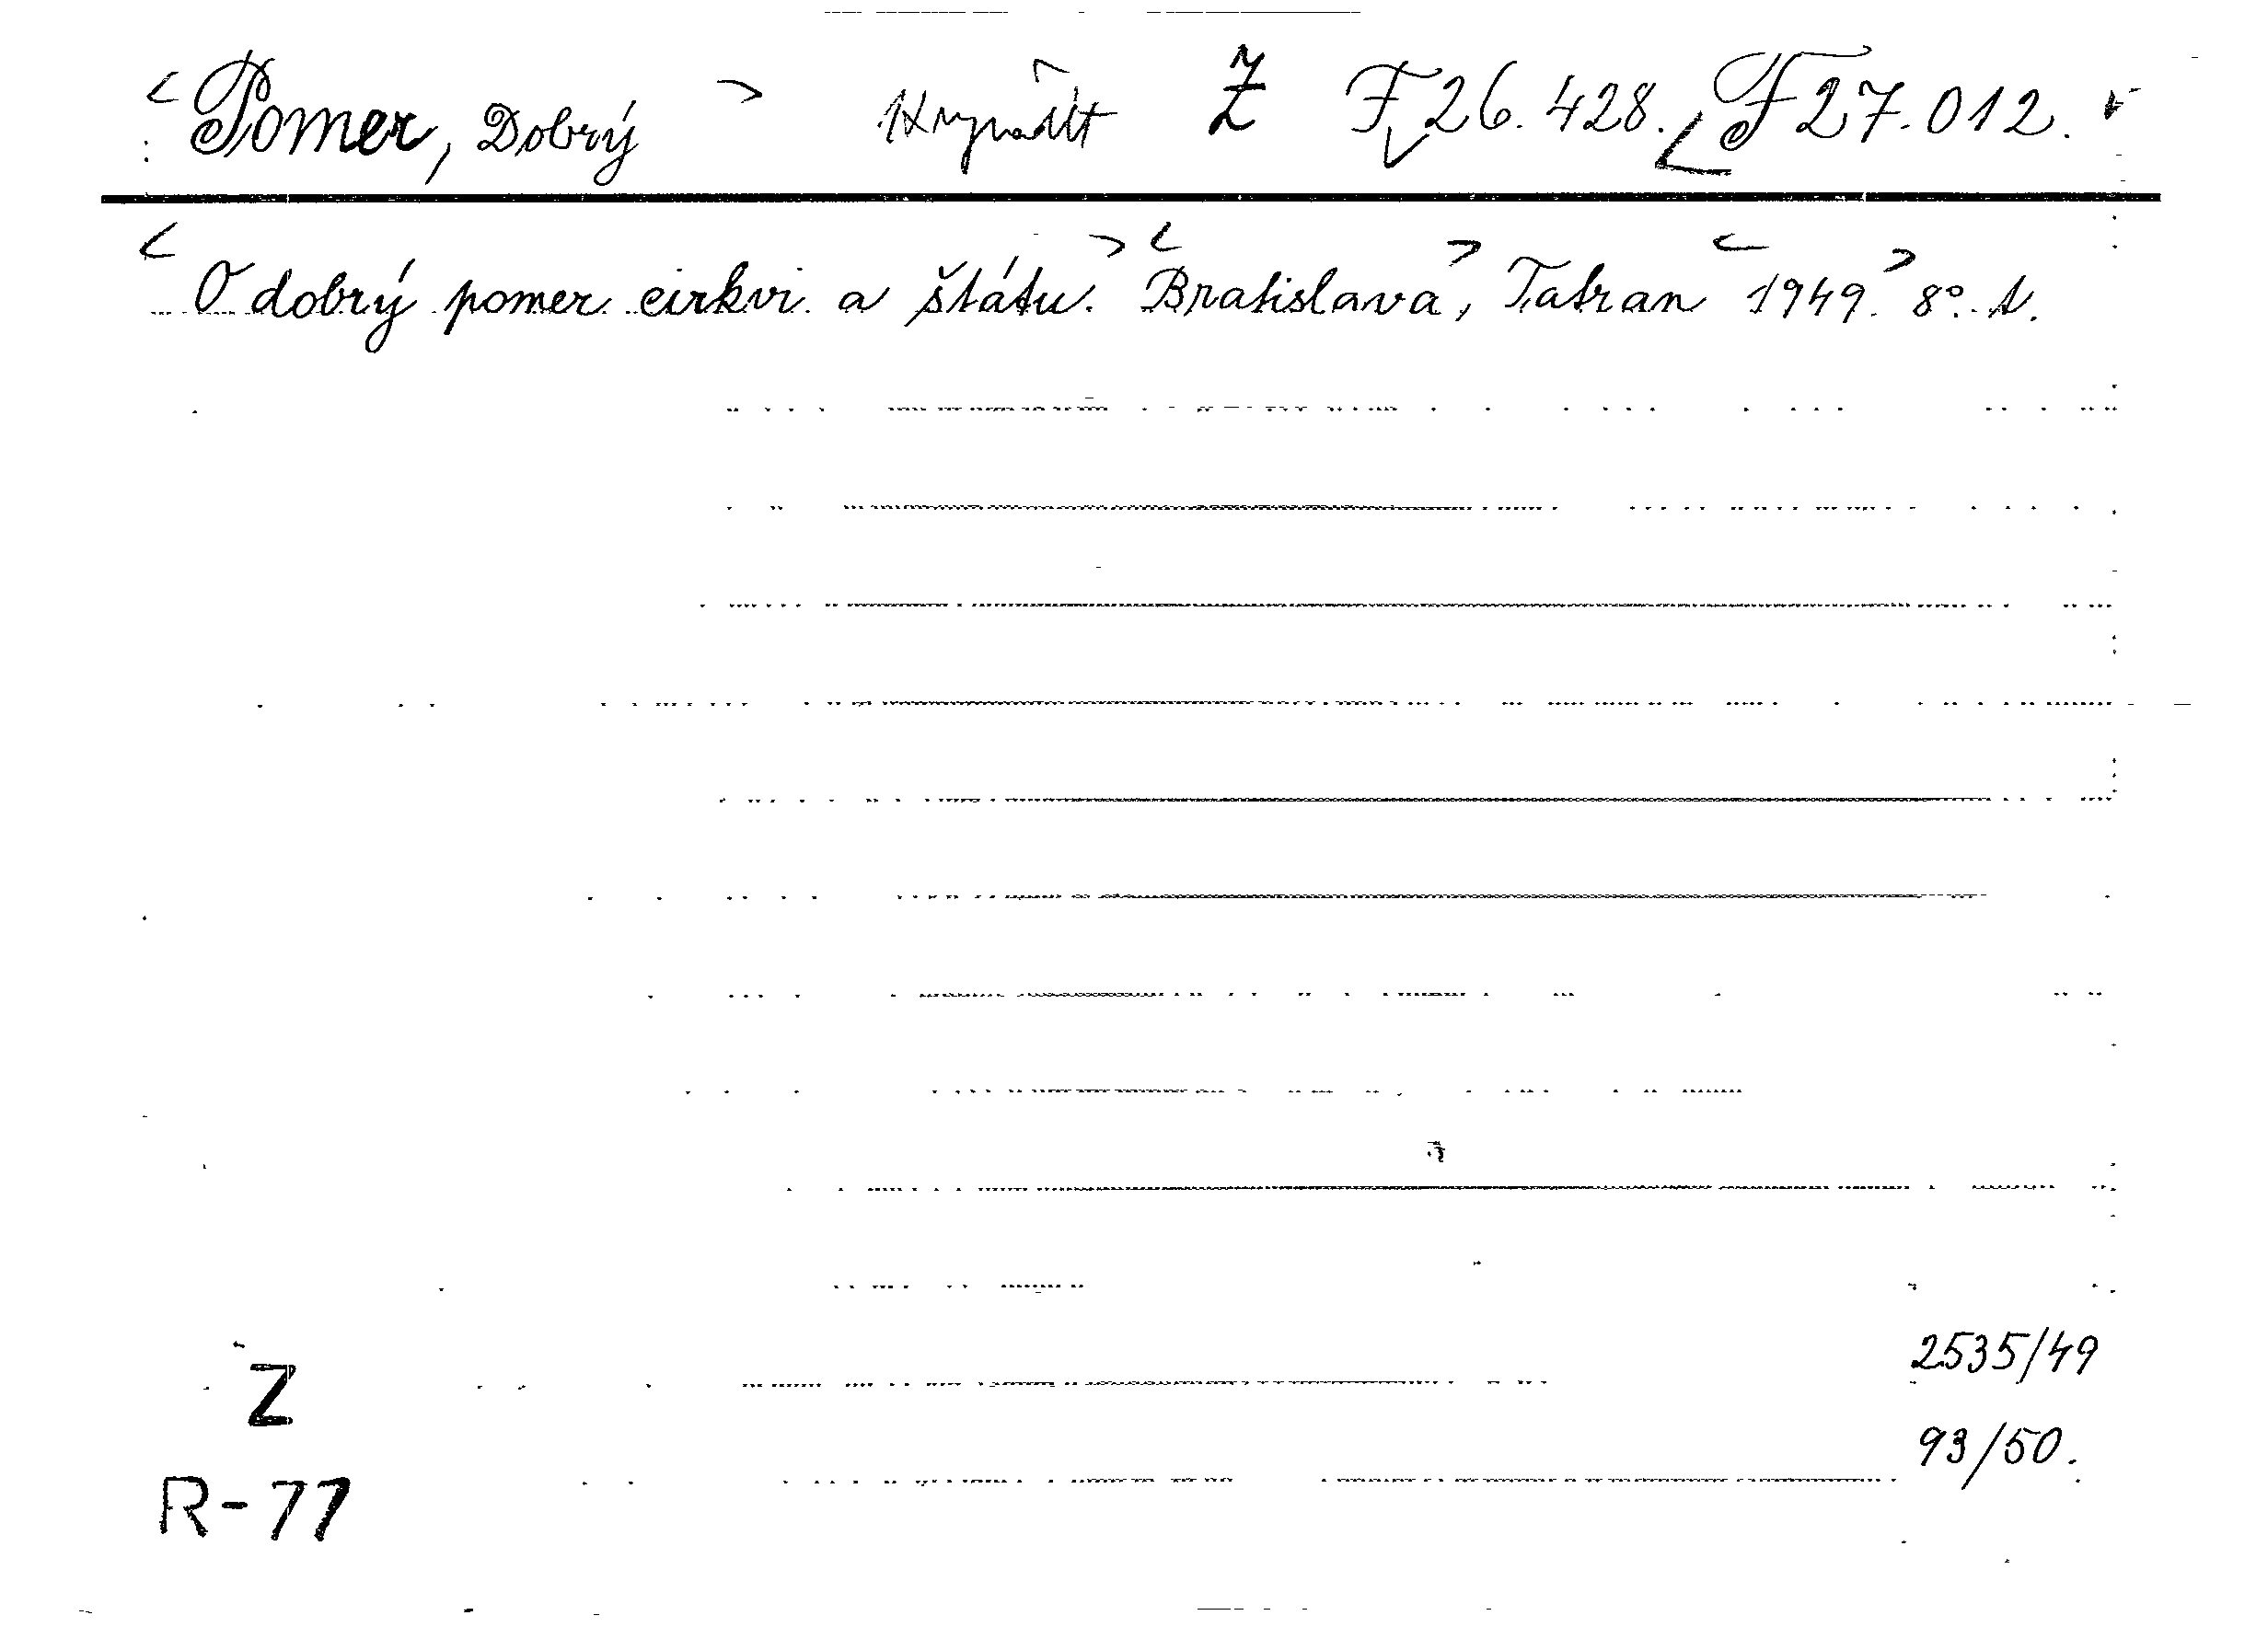 <Pomer, Dobrý> Ž F 26.428. F 27.012.
<O dobrý pomer cirkvi a štátu.> <Bratislava>, Tatran <1949.> 8°. s.
2535/49
Z
93/50.
R-77